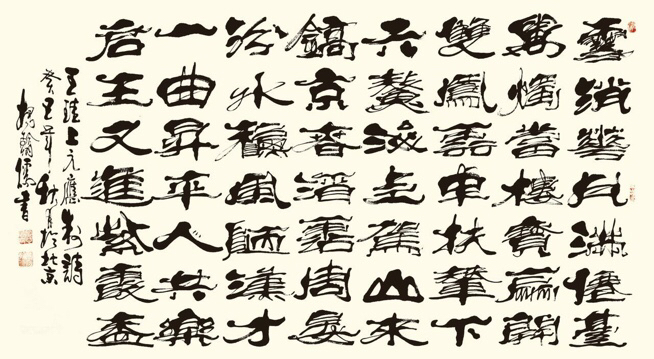 雪消華月滿僊臺
萬燭當樓寶扇開
雙鳳雲中扶輦下
六鰲海上駕山來
鎬京春酒霑周宴
汾水穐風陋漢才
一曲昇平人共樂
君王又進紫霞盃
王珪上元應制詩
癸巳年秋月於北京
書